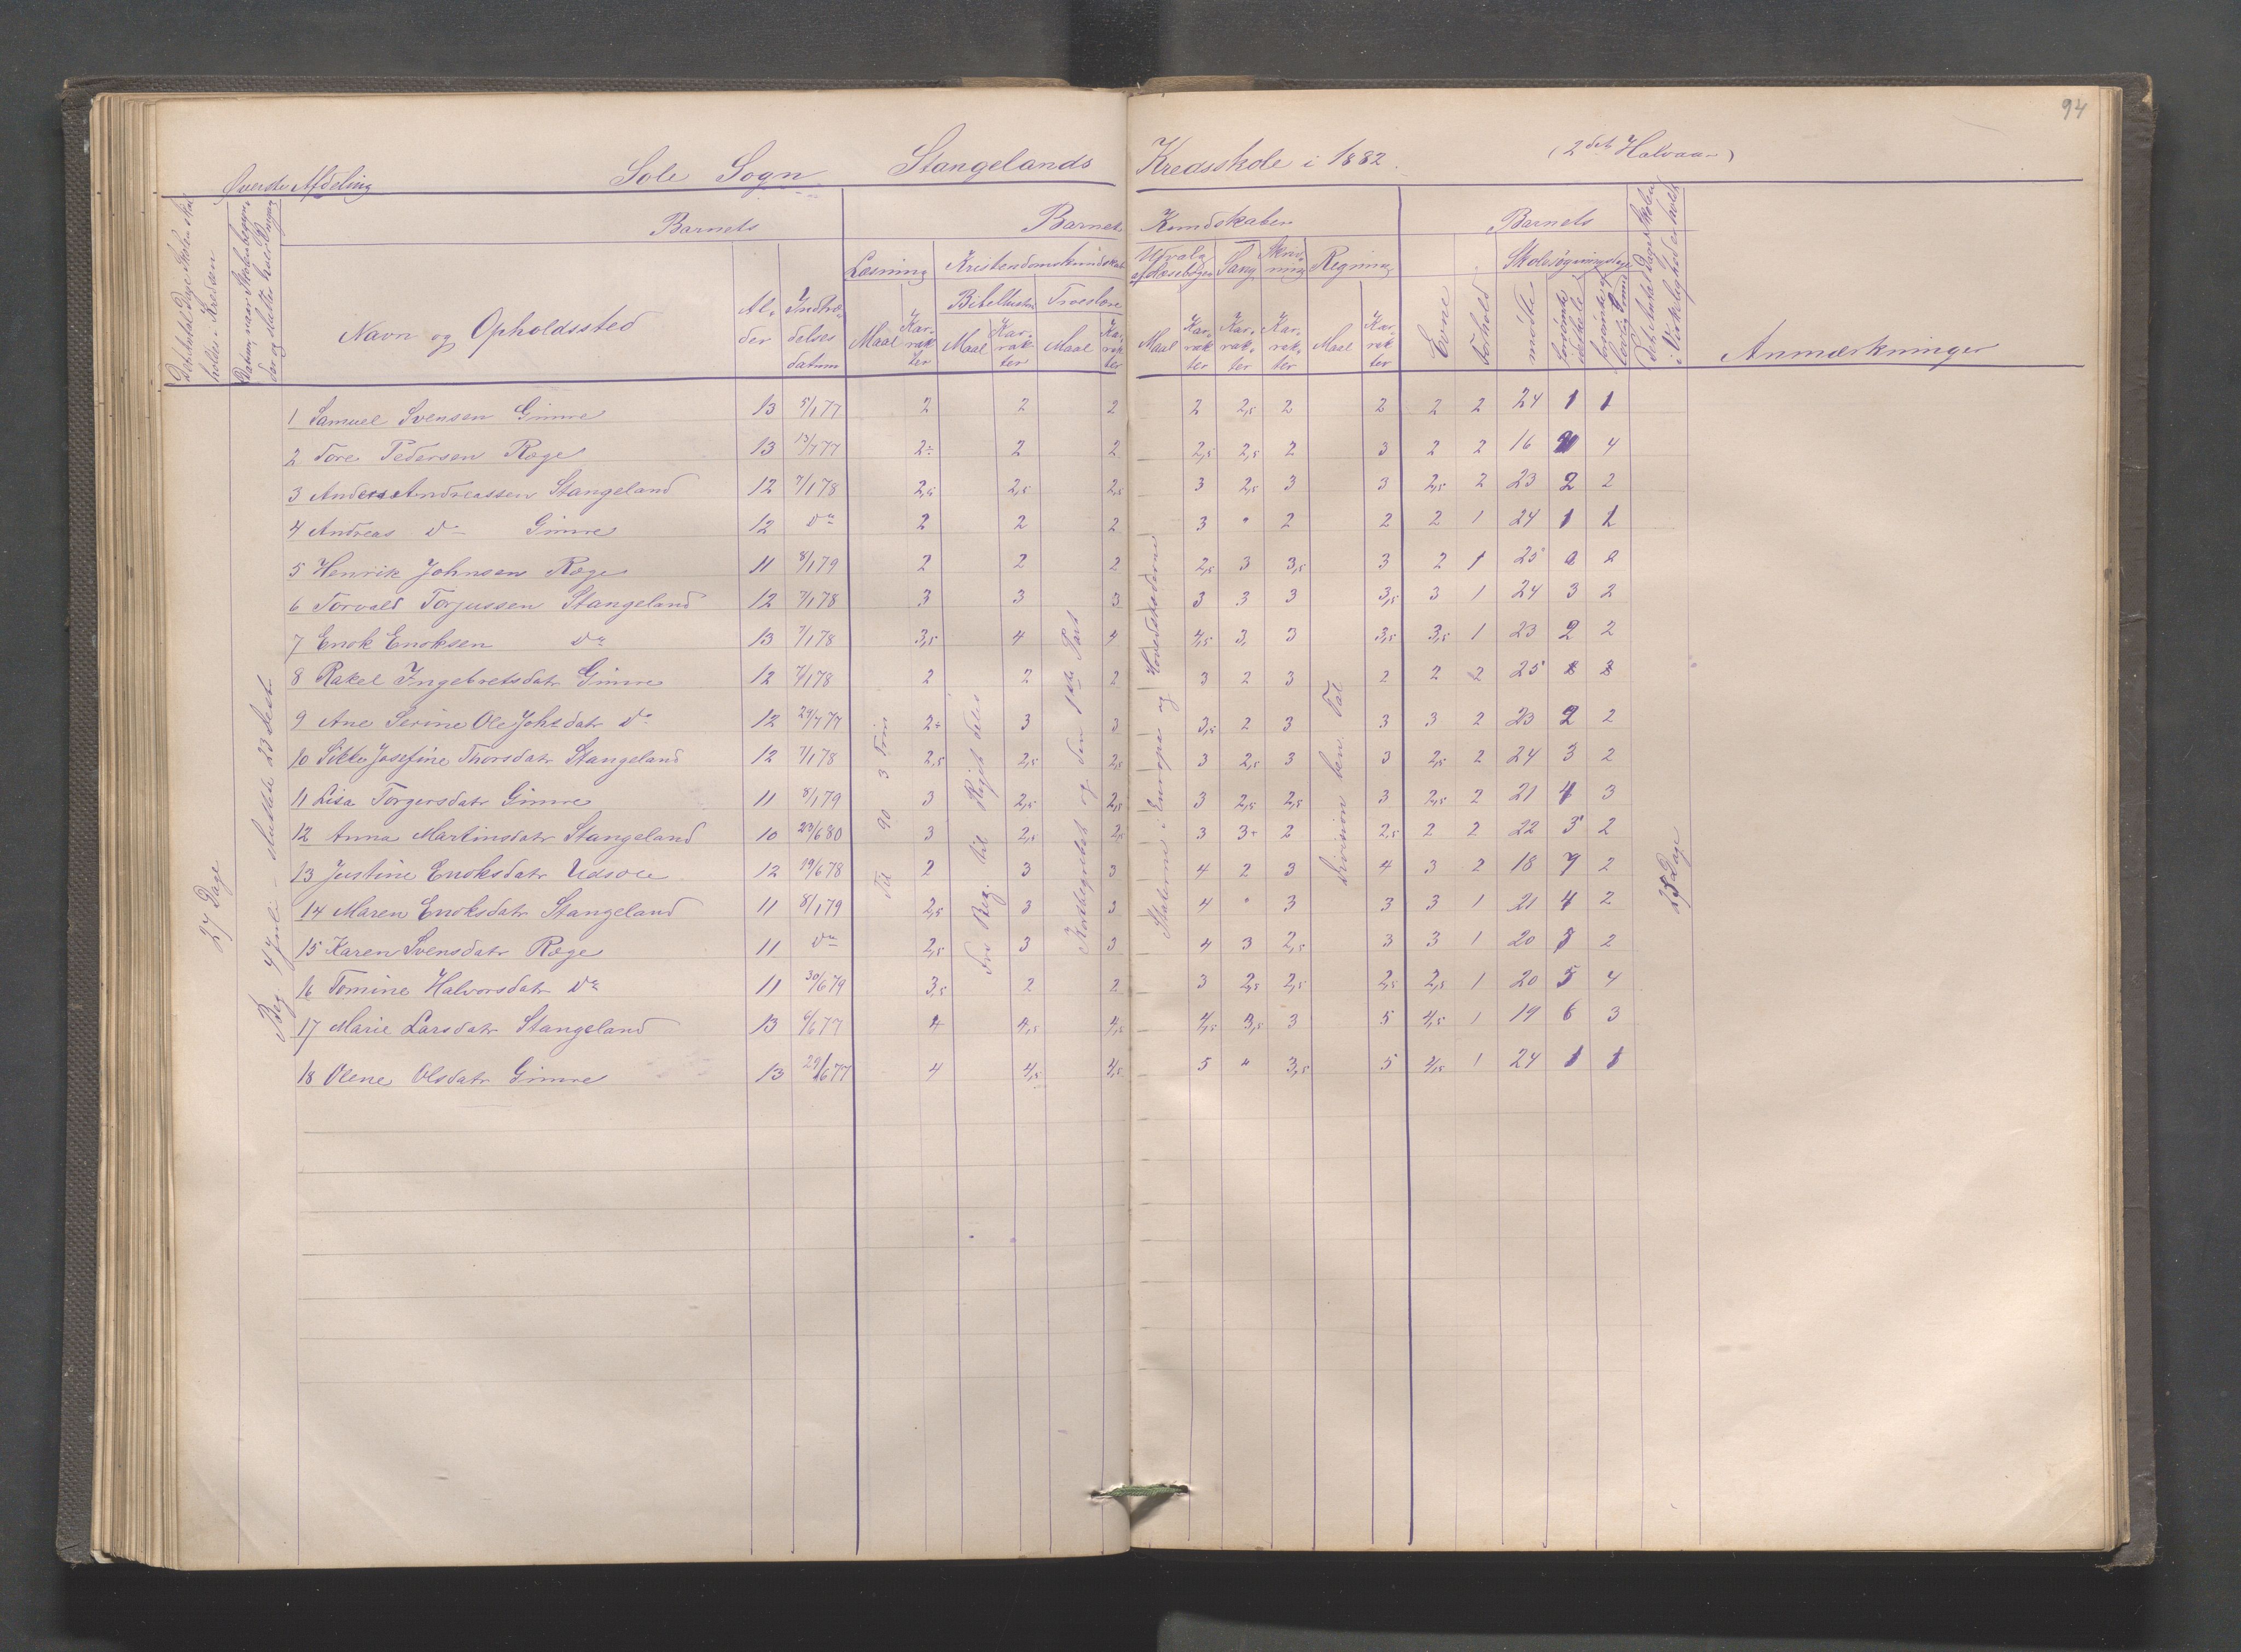 94
Sole Sogn Stangelands Kredsskole i 1882. (2det Halvaar)
Øverste Afdeling
Barnets Barnets Kundskaber Barnets
Det Antal Dage Skolen skal holdes i Kredsen
Datum, naar Skolen begynder og slutter hver Omgang
Navn og Opholdssted
Al-der
Indtrædelses datum
Læsning Kristendomskundskab Udvalg af Læsebogen Sang Skrivning Regning
Bibelhistorie Troeslære
Maal Karakter Maal Karakter Maal Karakter Maal Karakter Karakter Karakter Maal Karakter
Evne Forhold Skolesøgningsdage
mødte forsømte i det hele forsømte af lovlig Grund
Det Antal Dage Skolen i Virkeligheden er holdt
Anmærkninger
27 Dage
Beg. 4 Juli - sluttede 23 Sept.
Til 90 3 Trin
Fra Beg. til Riget deles
og den 1ste Part
Staterne i Europa og Hovedstæderne
Division ben. Tal
25 Dage
1 Samuel Svensen Gimre 13 5/1 77 2 2 2 2 2,5 2 2 2 2 24 1 1
2 Tore Pedersen Røge 13 13/7 77 2÷ 2 2 2,5 2,5 2 3 2 2 16 4
3 Anders Andreassen Stangeland 12 7/1 78 2,5 2,5 2,5 3 2,5 3 3 2,5 2 23 2 2
4 Andreas do Gimre 12 do 2 2 2 3 " 2 2 2 1 24 1 1
5 Henrik Johnsen Røge 11 8/1 79 2 2 2 2,5 3 3,5 3 2 1 25 0 0
6 Torvald Torjussen Stangeland 12 7/1 78 3 3 3 3 3 3 3,5 3 1 24 3 2
7 Enok Enoksen do 13 7/1 78 3,5 4 4 4,5 3, 3 3,5 3,5 1 23 2 2
8 Rakel Ingebretsdatr Gimre 12 7/1 78 2 2 2 3 2 3 2 2 2 25
9 Ane Serine Ole Johs datr do 12 24/7 77 2+ 3 3 3,5 2 3 3 3 2 23 2 2
10 Sikke Josefine Thorsdatr Stangeland 12 7/1 78 2,5 2,5 2,5 3 2,5 3 3 2,5 2 24 3 2
11 Lisa Torgersdatr Gimre 11 8/1 79 3 2,5 2,5 3 2,5 2,5 3 2,5 2 21 4 3
12 Anna Martinsdatr Stangeland 10 23/6 80 3 2,5 2,5 3 3+ 2 2,5 2 2 22 3 2
13 Justine Enoksdatr Udsole 12 19/6 78 2 3 3 4 2 3 4 3 2 18 7 2
14 Maren Enoksdatr Stangeland 11 8/1 79 2,5 3 3 4 " 3 3 3 1 21 4 2
15 Karen Svensdatr Røge 11 do 2,5 3 3 4 3 2,5 3 3 1 20 2
16 Tomine Halvorsdatr do 11 30/6 79 3,5 2 2 3 2,5 2,5 2,5 2,5 1 20 5 4
17 Marie Larsdatr Stangeland 13 6/6 77 4 4,5 4,5 4,5 3,5 3 5 4,5 1 19 6 3
18 Olene Olsdatr Gimre 13 29/6 77 4 4,5 4,5 5 " 3,5 5 4,5 1 24 1 1